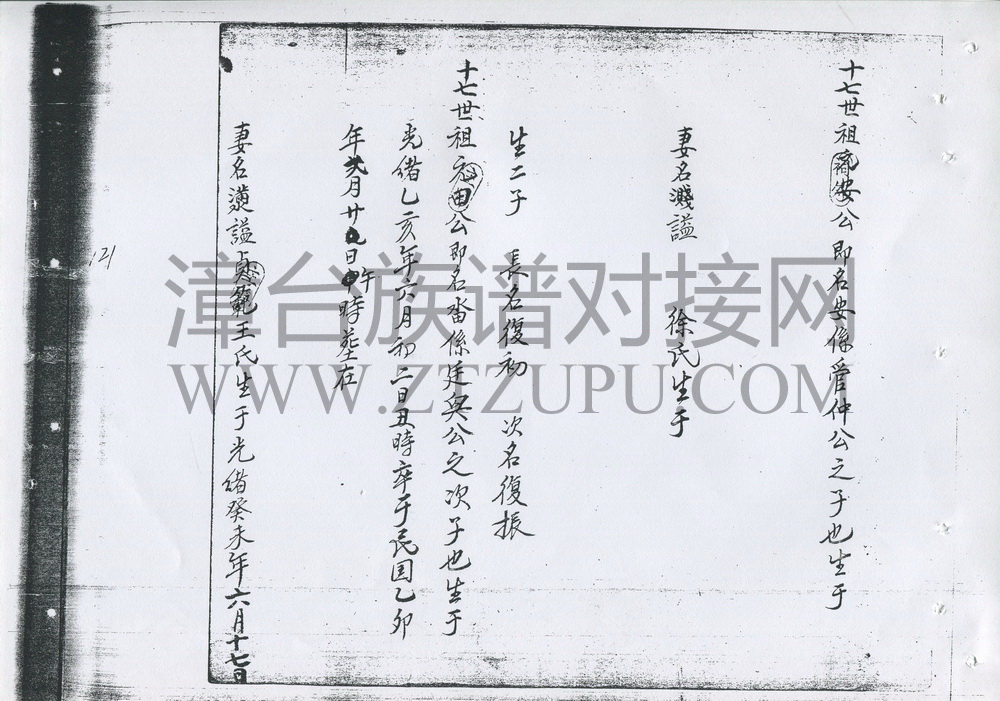 十七世祖齋安公即名安係管仲公之子也生于
妻名濺謚 徐氏生于
生二子 長名復初 次名復振
十七世祖元由公即名畓係廷與公之次子也生于
光緒乙亥年六月初二日丑時卒于民国乙卯
年弍月廿九日午時葬在
妻名謚貞範王氏生于光緒癸未年六月十七日
121
漳台族谱对接网
WWW.ZTZUPU.COM